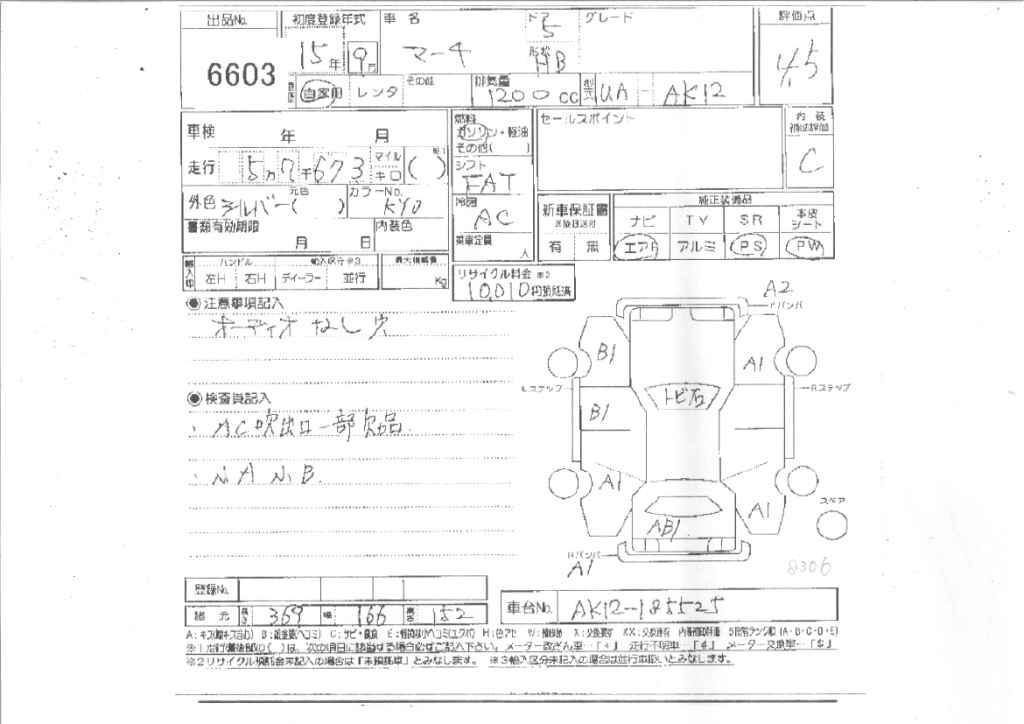 出品No. 初度登録年式 車名 ドア グレード 評価点
6603 15年 9月 マーチ 5 4.5
形状 HB
自家用 レンタ その他 排気量 1200cc 型式 UA-AK12
車検 年 月 燃料 ガソリン・軽油 その他( ) セールスポイント 内装
走行 5万7千673 マイル キロ ( ) シフト FAT C
外色 シルバー 元色( ) カラーNo. KY0 冷房 AC 新車保証書 純正装備品
書類有効期限 月 日 内装色 乗車定員 人 有 無 ナビ TV SR 本皮シート
エアB アルミ PS PW
ハンドル 左H 右H ディーラー 並行 最大積載量 Kg リサイクル料金 ※2
10,010
◉注意事項記入
オーディオなし穴
◉検査員記入
・AC吹出口一部欠品
・N A N B
A2
Fバンパ
B1 A1
Lステップ Rステップ
トビ石
B1
A1 A1
スペア
AB1
Rバンパ
A1
8306
登録No.
諸元 長さ 369 幅 166 高さ 152 車台No. AK12-185525
※2リサイクル預託金未記入の場合は「未預託車」とみなします。 ※3輸入区分未記入の場合は並行車扱いとみなします。